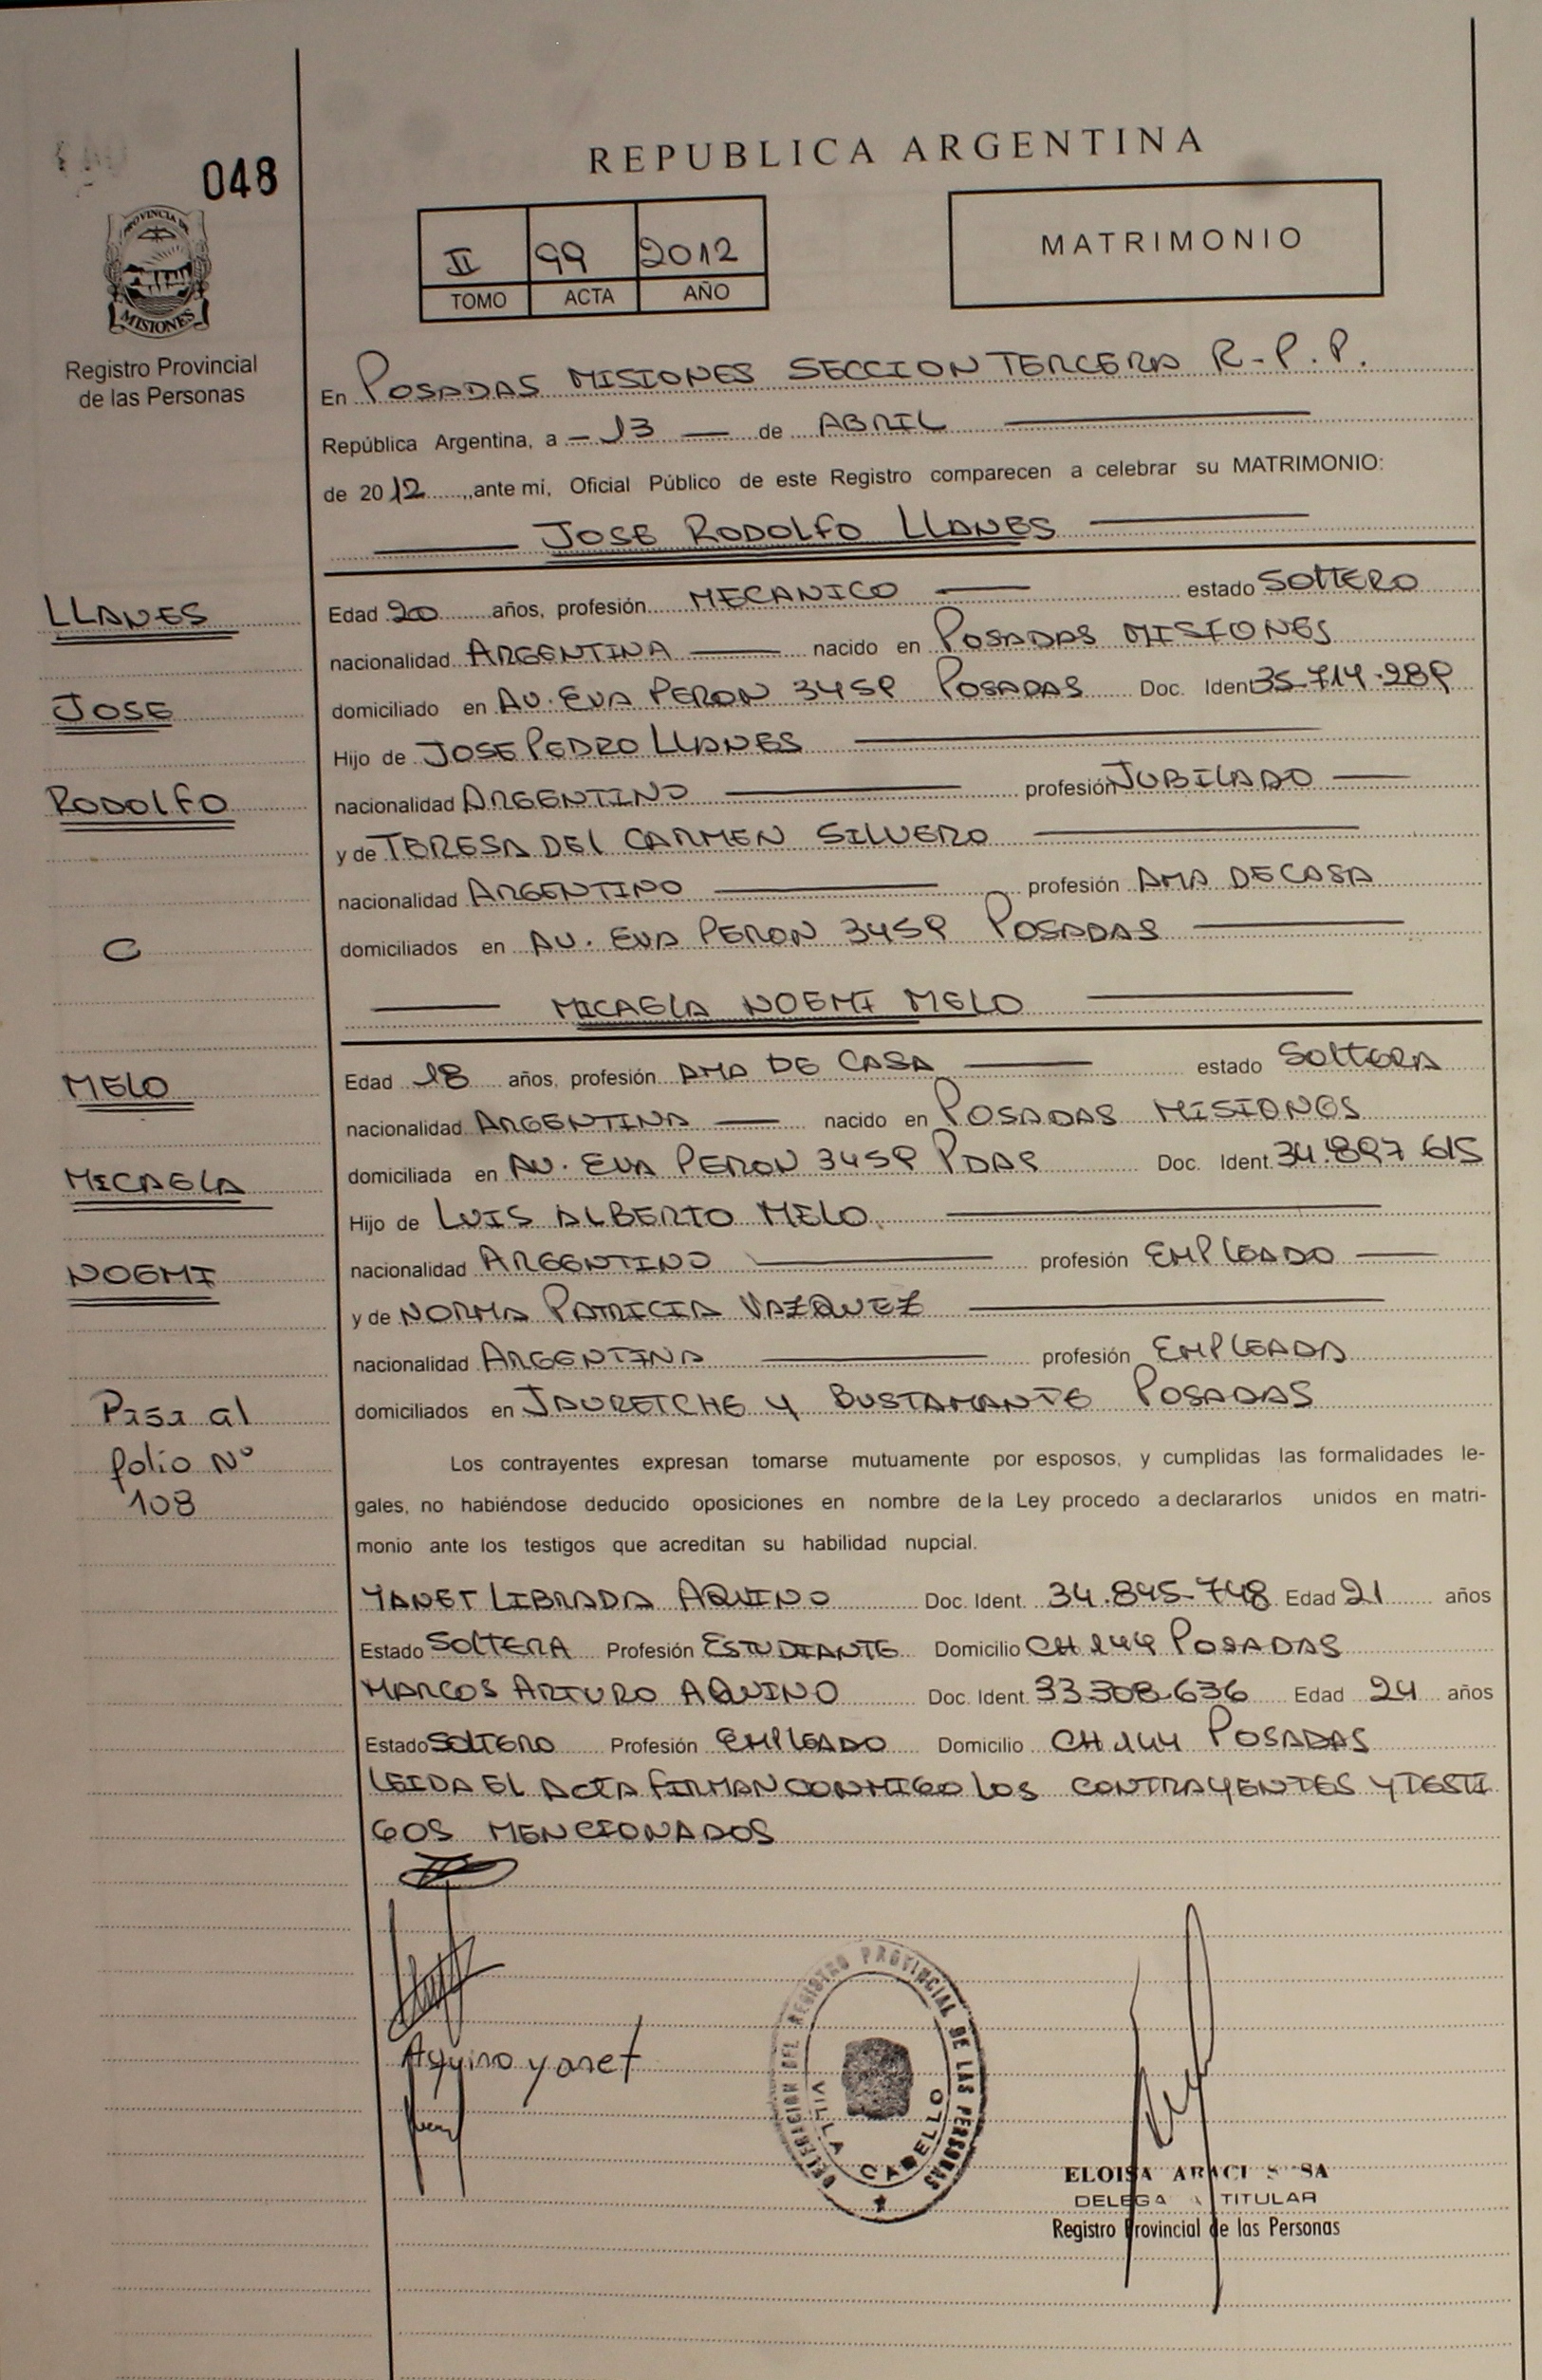 048
PROVINCIA DE
MISIONES
Registro Provincial
de las Personas
REPUBLICA ARGENTINA
II 99 2012
TOMO ACTA AÑO
MATRIMONIO
En POSADAS MISIONES SECCION TERCERA R-P.P.
República Argentina, a - 13 — de ABRIL —
de 2012 ,ante mí, Oficial Público de este Registro comparecen a celebrar su MATRIMONIO:
— JOSE RODOLFO LLANES —
LLANES
JOSE
RODOLFO
C
MELO
MICAELA
NOEMI
Pasa al
folio Nº
108
Edad 20 años, profesión MECANICO — estado SOLTERO
nacionalidad ARGENTINA — nacido en POSADAS MISIONES
domiciliado en AV. EVA PERON 3459 POSADAS Doc. Ident 35.714.289
Hijo de JOSE PEDRO LLANES —
nacionalidad ARGENTINO — profesión JUBILADO —
y de TERESA DEL CARMEN SILVERO —
nacionalidad ARGENTINO — profesión AMA DE CASA
domiciliados en AV. EVA PERON 3459 POSADAS —
— MICAELA NOEMI MELO —
Edad 18 años, profesión AMA DE CASA — estado SOLTERA
nacionalidad ARGENTINA — nacido en POSADAS MISIONES
domiciliada en AV. EVA PERON 3459 PDAS Doc. Ident. 34.897.615
Hijo de LUIS ALBERTO MELO. —
nacionalidad ARGENTINO — profesión EMPLEADO —
y de NORMA PATRICIA VAZQUEZ —
nacionalidad ARGENTINA — profesión EMPLEADA
domiciliados en JAURETCHE Y BUSTAMANTE POSADAS
Los contrayentes expresan tomarse mutuamente por esposos, y cumplidas las formalidades le-
gales, no habiéndose deducido oposiciones en nombre de la Ley procedo a declararlos unidos en matri-
monio ante los testigos que acreditan su habilidad nupcial.
YANET LIBRADA AQUINO Doc. Ident. 34.895.748 Edad 21 años
Estado SOLTERA Profesión ESTUDIANTE Domicilio CH 144 POSADAS
MARCOS ARTURO AQUINO Doc. Ident. 33.308.636 Edad 24 años
Estado SOLTERO Profesión EMPLEADO Domicilio CH.144 POSADAS
LEIDA EL ACTA FIRMAN CONMIGO LOS CONTRAYENTES Y TESTI
GOS MENCIONADOS
Aquino yanet
DELEGACION DEL REGISTRO PROVINCIAL DE LAS PERSONAS
VILLA CABELLO
ELOISA ARACI
DELEGADA TITULAR
Registro Provincial de las Personas